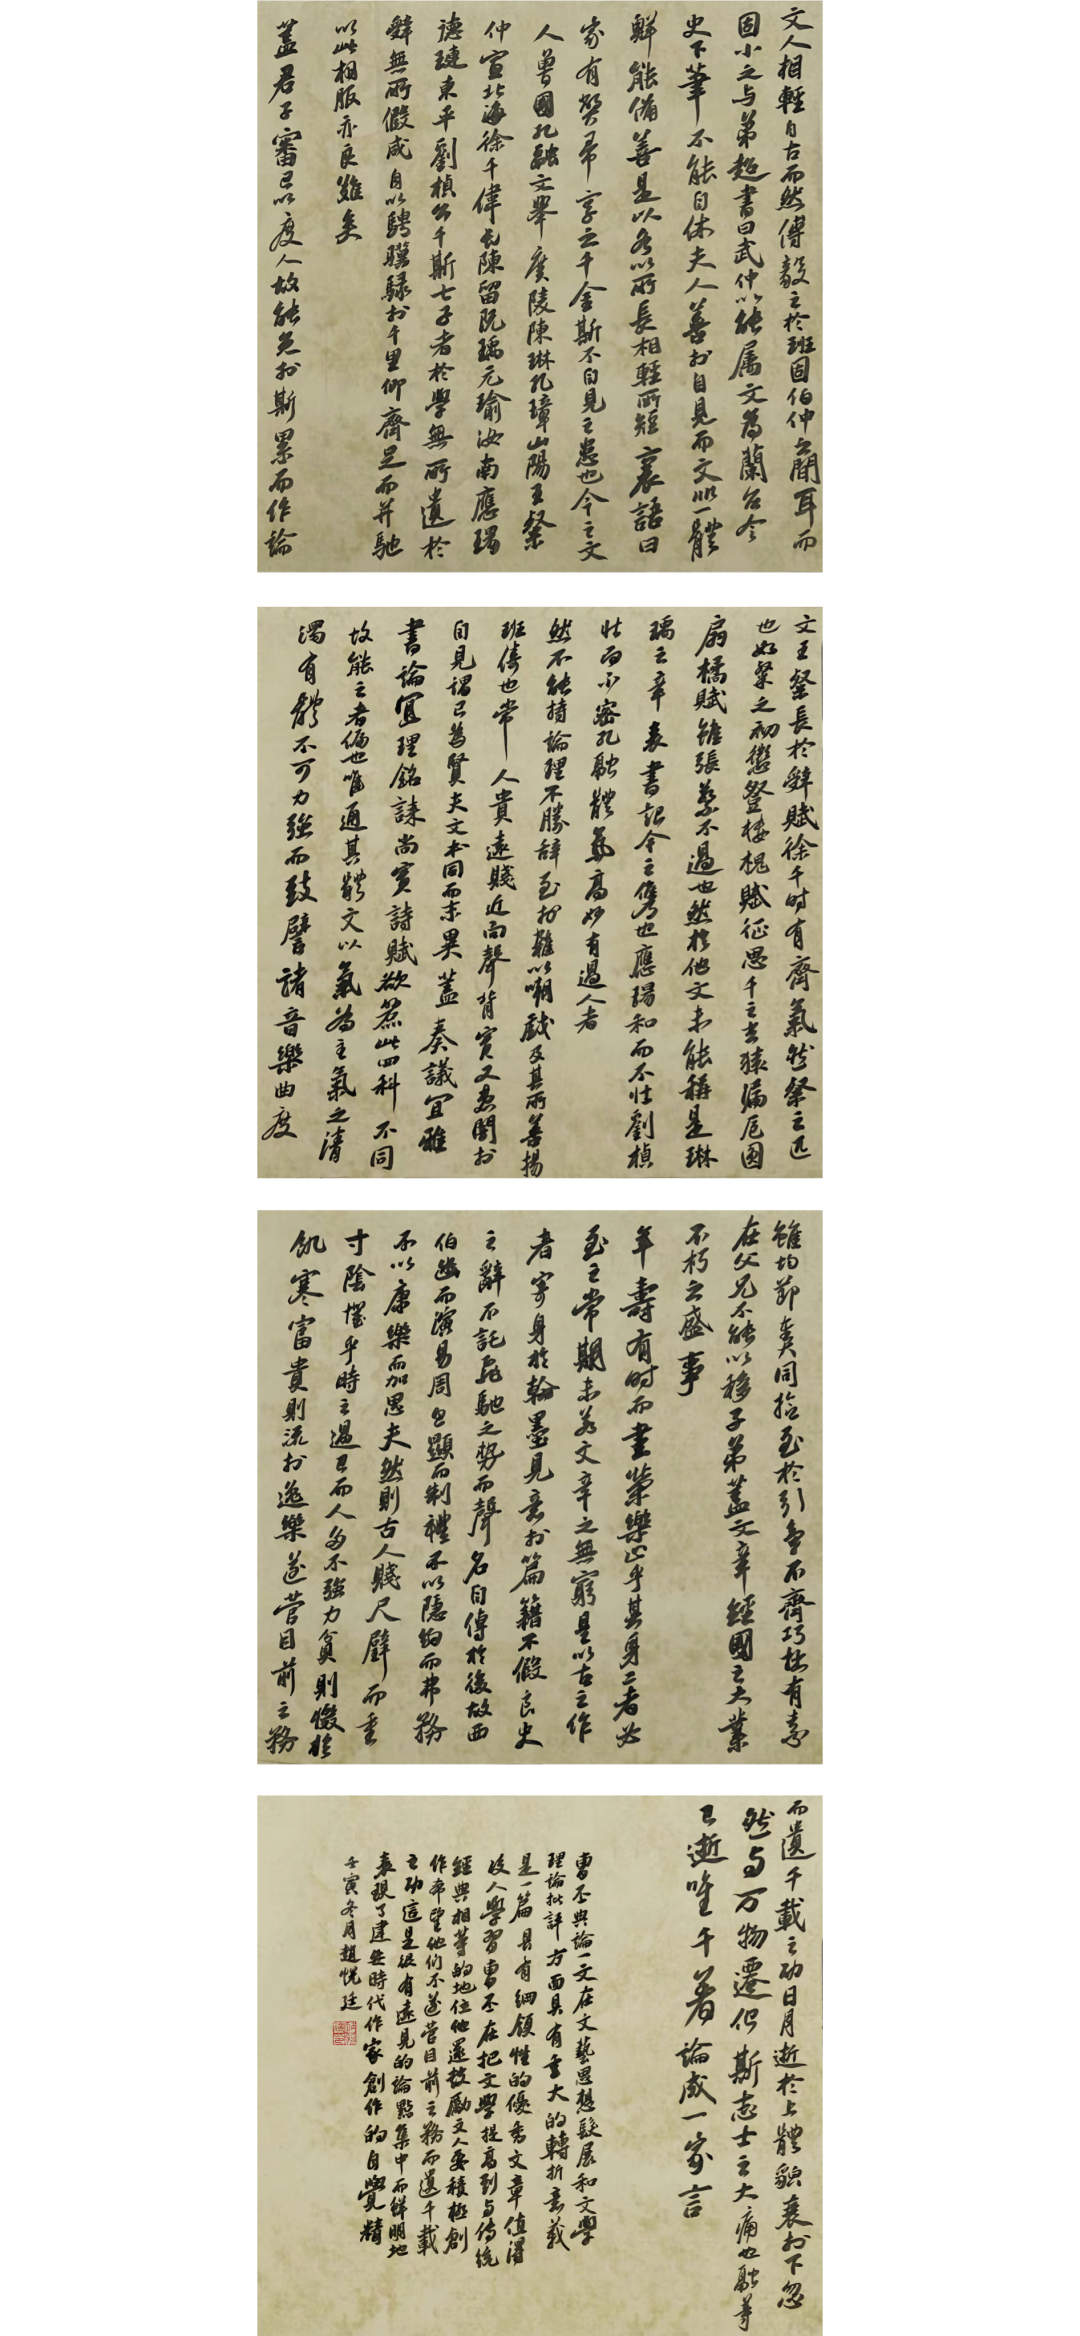 文人相輕自古而然傅毅之於班固伯仲之間耳而
固小之与弟超書曰武仲以能属文為蘭台令
史下筆不能自休夫人善於自見而文非一體
鮮能備善是以各以所長相輕所短裏語曰
家有弊帚享之千金斯不自見之患也今之文
人魯國孔融文舉廣陵陳琳孔璋山陽王粲
仲宣北海徐干偉長陳留阮瑀元瑜汝南應瑒
德璉東平劉楨公干斯七子者於學無所遺於
辭無所假咸自以騁驥騄於千里仰齊足而并馳
以此相服亦良難矣
蓋君子審己以度人故能免於斯累而作論
文王粲長於辭賦徐干時有齊氣然粲之匹
也如粲之初征登樓槐賦征思干之玄猿漏卮圓
扇橘賦雖張蔡不過也然於他文未能稱是琳
瑀之章表書記今之雋也應瑒和而不壯劉楨
壯而不密孔融體氣高妙有過人者
然不能持論理不勝辞至於雜以嘲戲及其所善揚
班儔也常人貴遠賤近向聲背實又患闇於
自見謂己為賢夫文本同而末異蓋奏議宜雅
書論宜理銘誄尚實詩賦欲麗此四科不同
故能之者偏也唯通其體文以氣為主氣之清
濁有體不可力強而致譬諸音樂曲度
雖均節奏同檢至於引氣不齊巧拙有素
在父兄不能以移子弟蓋文章經國之大業
不朽之盛事
年壽有时而盡榮樂止乎其身二者必
至之常期未若文章之無窮是以古之作
者寄身於翰墨見意於篇籍不假良史
之辭不託飛馳之勢而聲名自傅於後故西
伯幽而演易周旦顯而制禮不以隱約而弗務
不以康樂而加思夫然則古人賤尺璧而重
寸陰懼乎時之過已而人多不強力貧則懾於
飢寒富貴則流於逸樂遂营目前之務
而遺千載之功日月逝於上體貌衰於下忽
然与万物遷化斯志士之大痛也融等
已逝唯干著論成一家言
曹丕典論一文在文藝思想發展和文學
理論批評方面具有重大的轉折意義
是一篇具有綱領性的優秀文章值得
後人學習曹丕在把文學提高到与傳統
經典相等的地位他還鼓勵文人要積極創
作希望他们不遂营目前之務而遺千載
之功這是很有遠見的論點集中而鮮明地
表現了建安時代作家創作的自覺精
壬寅冬月趙悅廷